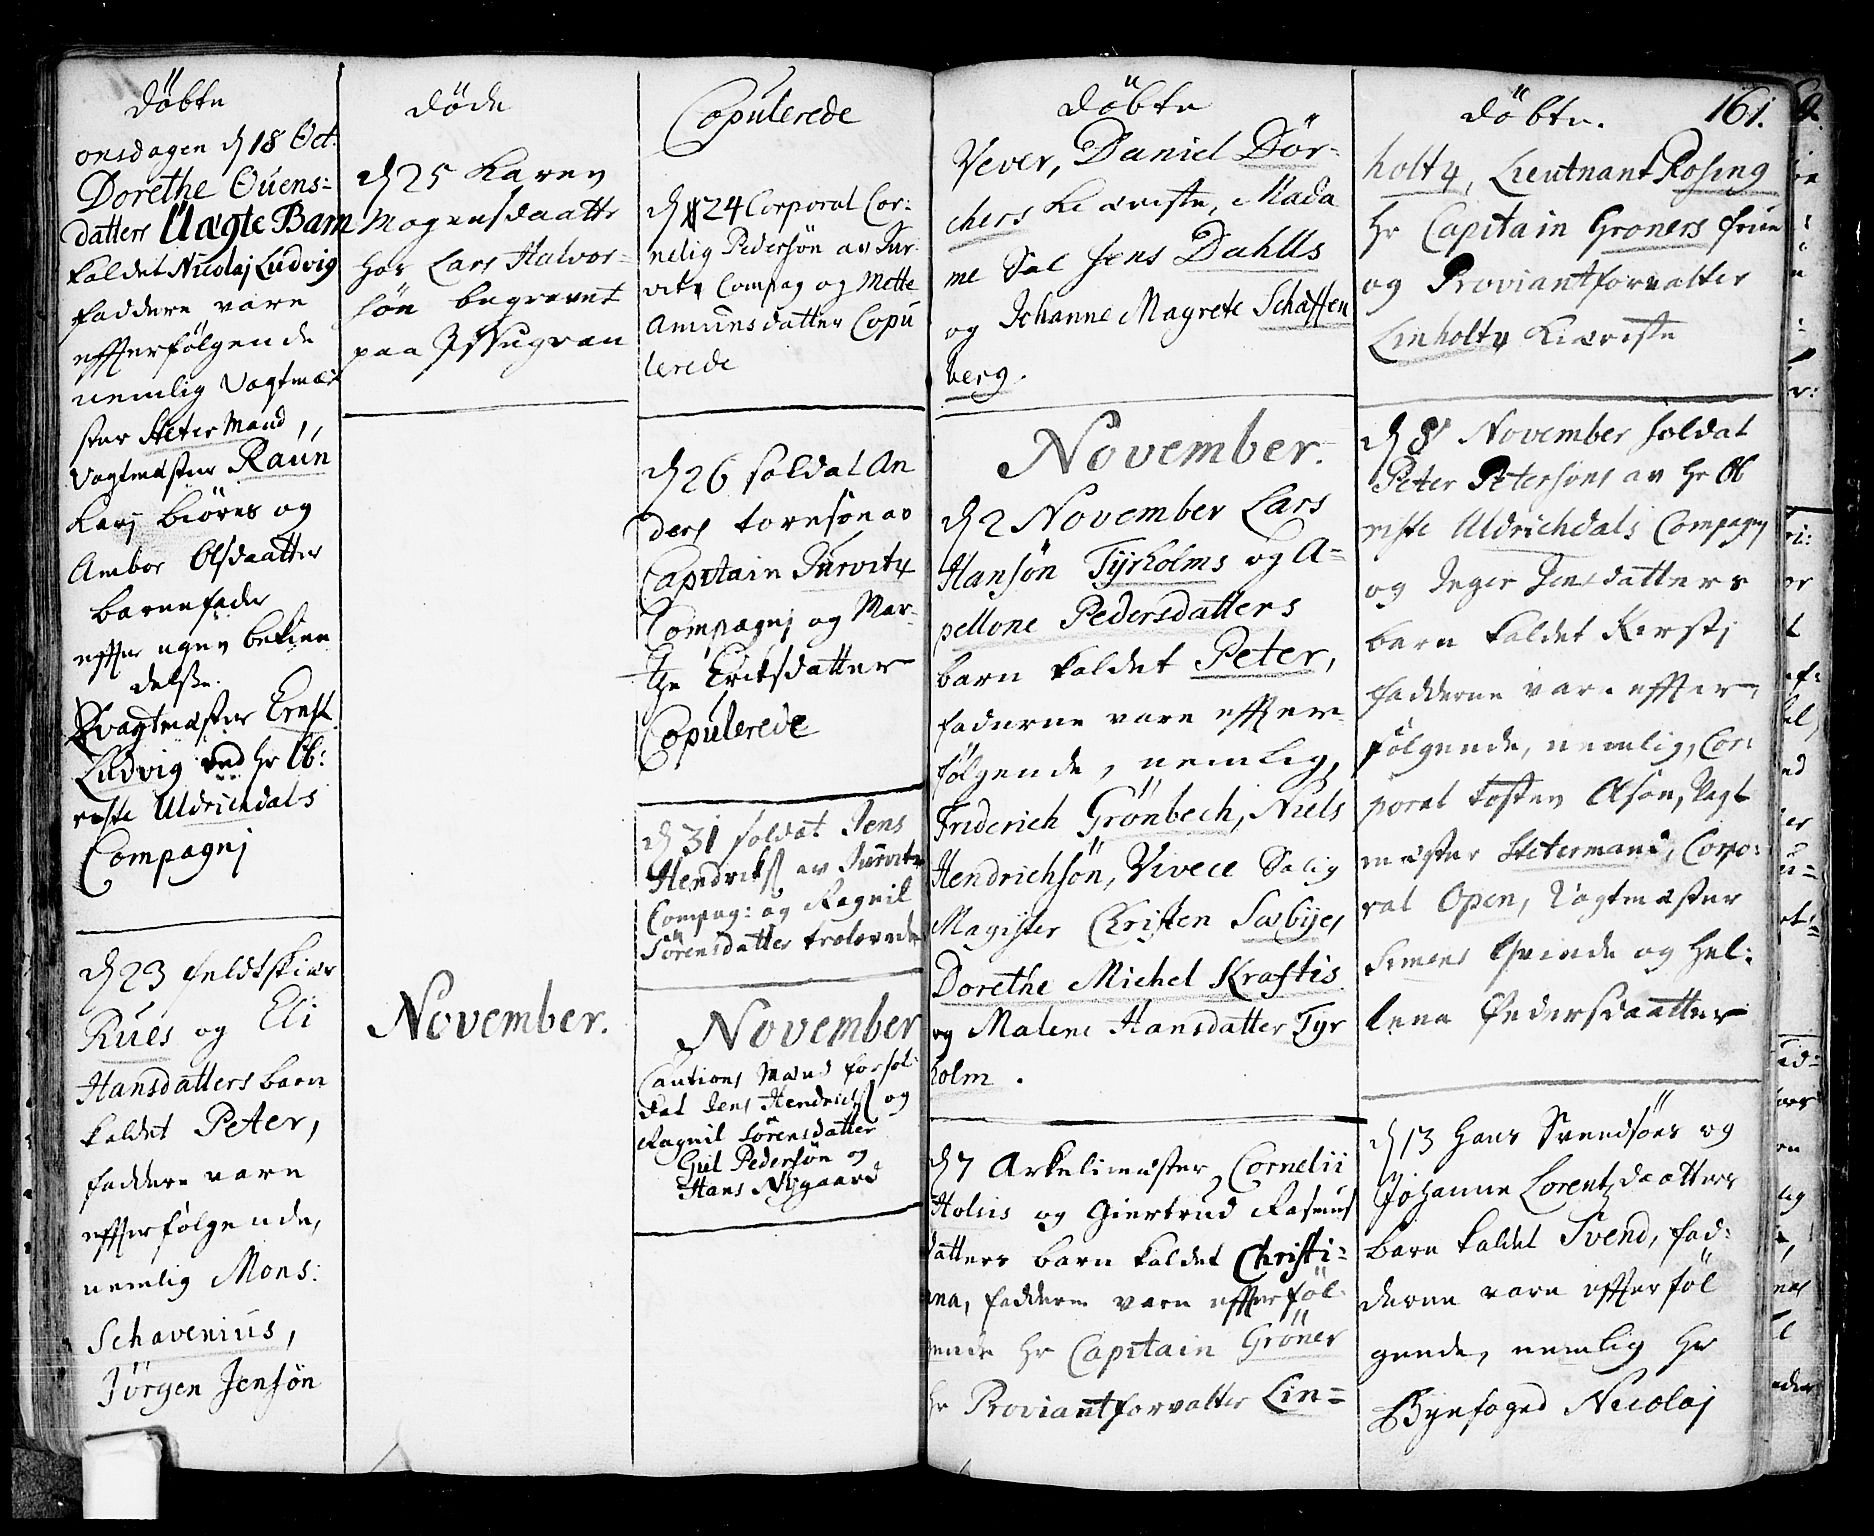 Döbte
onsdagen d 18 Oct.
Dorethe Ouens=
datters Uægte Barn
kaldet Nicolaj Ludvig
faddere vare
effterfölgende
nemlig Vagtmæ
ster Steter Mand,
Vagtmester Raun
Karj Biörns og
Ambor Olsdaatter
barnefader
effter egen bekien
delse.
Qvagtmester Ernst
Ludvig ved Hr Ob:
riste Uldrichdals
Compagnj
d 23 feldtskiær
Rues og Eli
Hansdatters barn
kaldet Peter,
faddere vare
effterfölgende,
nemlig Mons:
Schavenius,
Jörgen Jensön
Döde
d 25 Karen
Mogensdaatter
hos Lars Halvor=
sön begravet
paa
Copulerede
d 24 Corporal Cor:
nelig Pedersön av Jur=
vitz Compag og Mette
Amunsdatter Copu
lerede
d 26 soldat An
ders Tornsön av
Capitain Jurvitz
Compagnj og Mar=
the Eriksdatter
Copulerede
d 31 soldat Jens
Hendriks av Jurvitz
Compag: og Ragnil
Sörensdatter trolovede
November.
November
Cautions Mænd for sol:
dat Jens Hendrichs og
Ragnil Sörensdatter
Gul Pedersön og
Hans Nygaard
Döbte
Vever, Daniel Dör=
chers Kiæriste, Mada
me Sal Jens Dahlls
og Johanne Magrete Schaffen
berg.
November.
d 2 November Lars
Hansön Tyrholms og A=
pellone Pedersdatters
barn kaldet Peter,
faderne vare effter
fölgende, nemlig,
Friderich Grönbech, Niels
Hendrichsön, Vivece Salig
Magister Christen Sæbyes
Dorethe Michel Kraftis
og Malene Hansdatter Tyr
holm.
d 7 Arkelimester Cornelii
Holus og Giertrud Rasmus
datters barn kaldet Christi=
ana, faddere vare effterföl
gende Hr Capitain Gröner
Hr Proviantforvalter Lin=
Döbte. 161.
holtz, Lieutnant Rosing
Hr Capitain Groners frue
og Proviantforvalter
Linholtz Kiæriste
d 8 November soldat
Peter Petersöns av Hr Ob
riste Uldrichdals Compagnj
og Inger Jensdatters
barn kaldet Kirstj
fadderne vare effter
fölgende, nemlig, Cor:
poral Tosten Olsön, Vagt
mester Stetermand, Corpo:
ral Open, Vagtmester
Simens Qvinde og Hel:
lena Pedersdaatter
d 13 Hans Svendsöns og
Johanne Lorentzdaatters
barn kaldet Svend, fad:
derne vare effterföl
gende, nemlig Hr
Byefoged Nicolaj